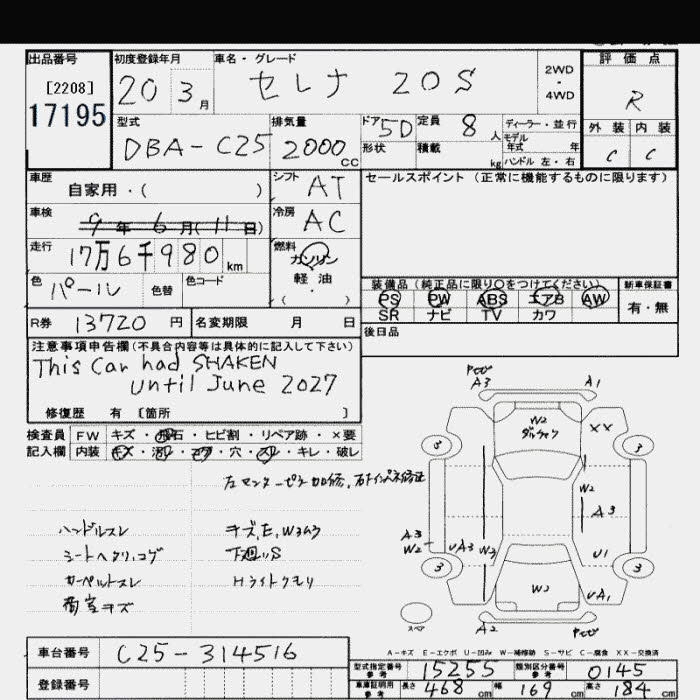 出品番号 初度登録年月 車名・グレード 評価点
[2208] 20 3月 セレナ 20S 2WD・4WD R
17195
型式 排気量 ドア 5D 定員 8人 ディーラー・並行 外装 内装
DBA-C25 2000cc 形状 積載 kg モデル年式 年 C C
ハンドル 左・右
車歴 自家用・( ) シフト AT セールスポイント(正常に機能するものに限ります)
車検 9年6月(11日) 冷房 AC
走行 17万6千980km 燃料 ガソリン
軽油
・( )
色 パール 色替 色コード 装備品(純正品に限り○をつけてください) 新車保証書
PS PW ABS エアB AW 有・無
SR ナビ TV カワ
R券 13720円 名変期限 月 日 後日品
注意事項申告欄(不具合内容等は具体的に記入して下さい)
This Car had SHAKEN
until June 2027
修復歴 有 [箇所 ]
検査員 FW キズ・飛石・ヒビ割・リペア跡・×要
記入欄 内装 キズ・汚レ・コゲ・穴・スレ・キレ・破レ
ハンドルスレ キズE,W3ムラ
シートヘタリ,コゲ 下廻りS
カーペットスレ Hライトクモリ
荷室キズ
A3 A1
W2 XX
3 3
W2
A3
A3 W2 UA3 W3 U1
3 3
W2 UA1
スペア A2
A-キズ E-エクボ U-凹み W-補修跡 S-サビ C-腐食 XX-交換済
車台番号 C25-314516 型式指定番号 参考 15255 類別区分番号 参考 0145
登録番号 車庫証明用 参考 長さ 468cm 幅 169cm 高さ 184cm